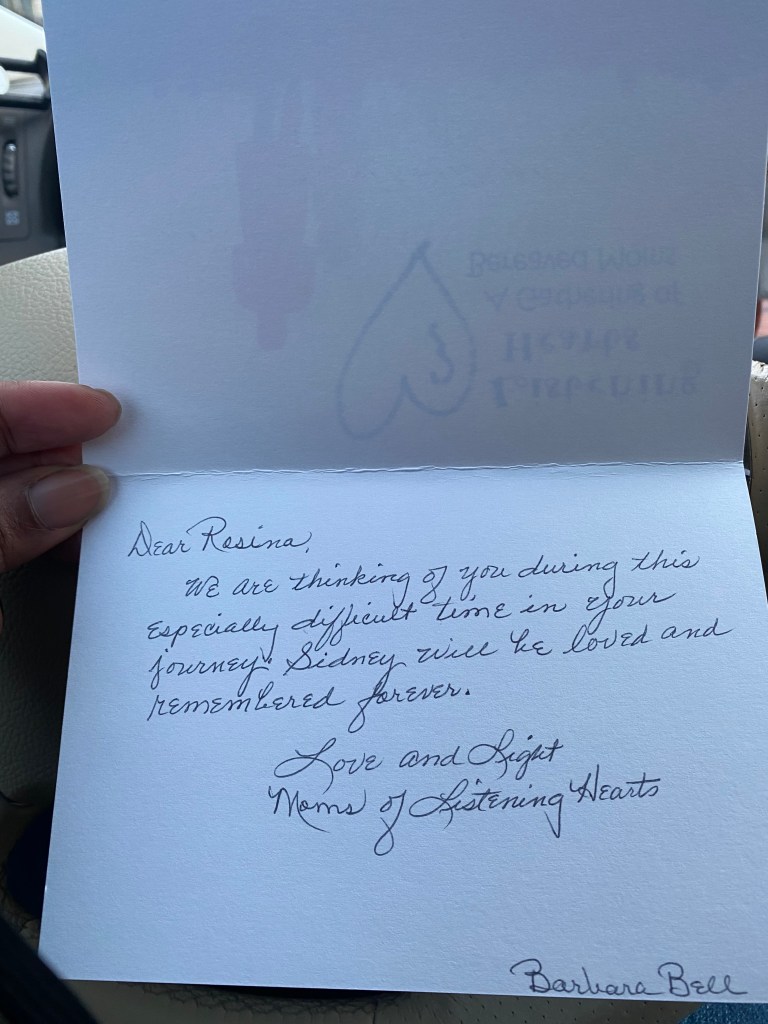 Listening
Hearts
A Gathering of
Bereaved Moms
Dear Rosina,
We are thinking of you during this
especially difficult time in your
journey. Sidney will be loved and
remembered forever.
Love and Light
Moms of Listening Hearts
Barbara Bell